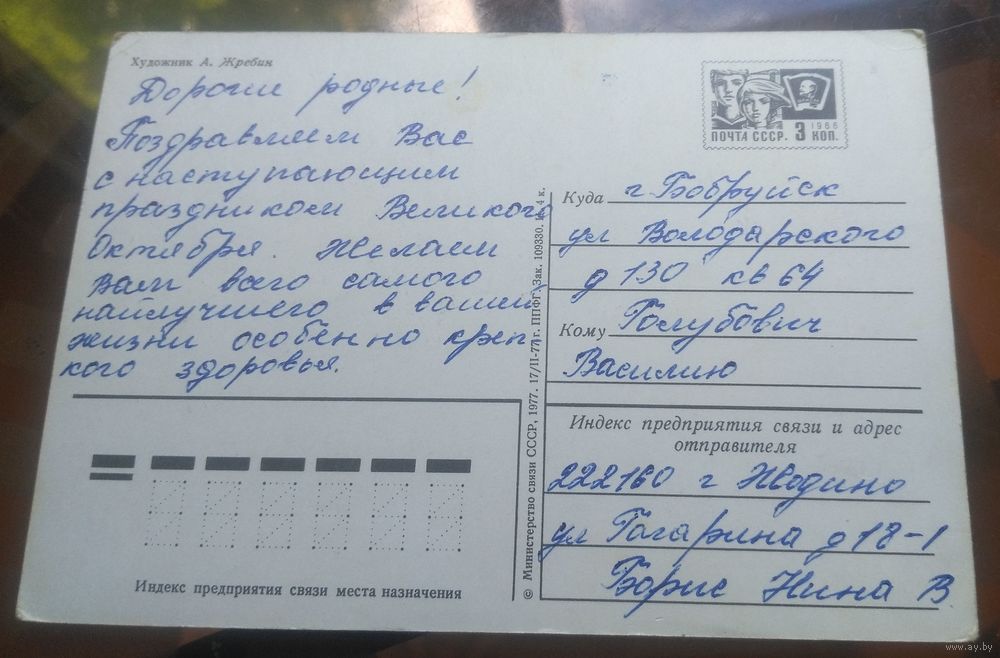 Художник А. Жребин
Дорогие родные!
Поздравляем Вас
с наступающим
праздником Великого
Октября. Желаем
Вам всего самого
найлучшего в вашей
жизни особенно креп-
кого здоровья.
Индекс предприятия связи места назначения
© Министерство связи СССР, 1977. 17/II-77 г. ППФГ. Зак. 109330. 4 к.
1966
ПОЧТА СССР. 3 КОП.
Куда г. Бобруйск
ул Володарского
д 130 кв 64
Кому Голубович
Василию
Индекс предприятия связи и адрес
отправителя
222160 г Жодино
ул Гагарина д 18-1
Борис Нина В.
www.ay.by